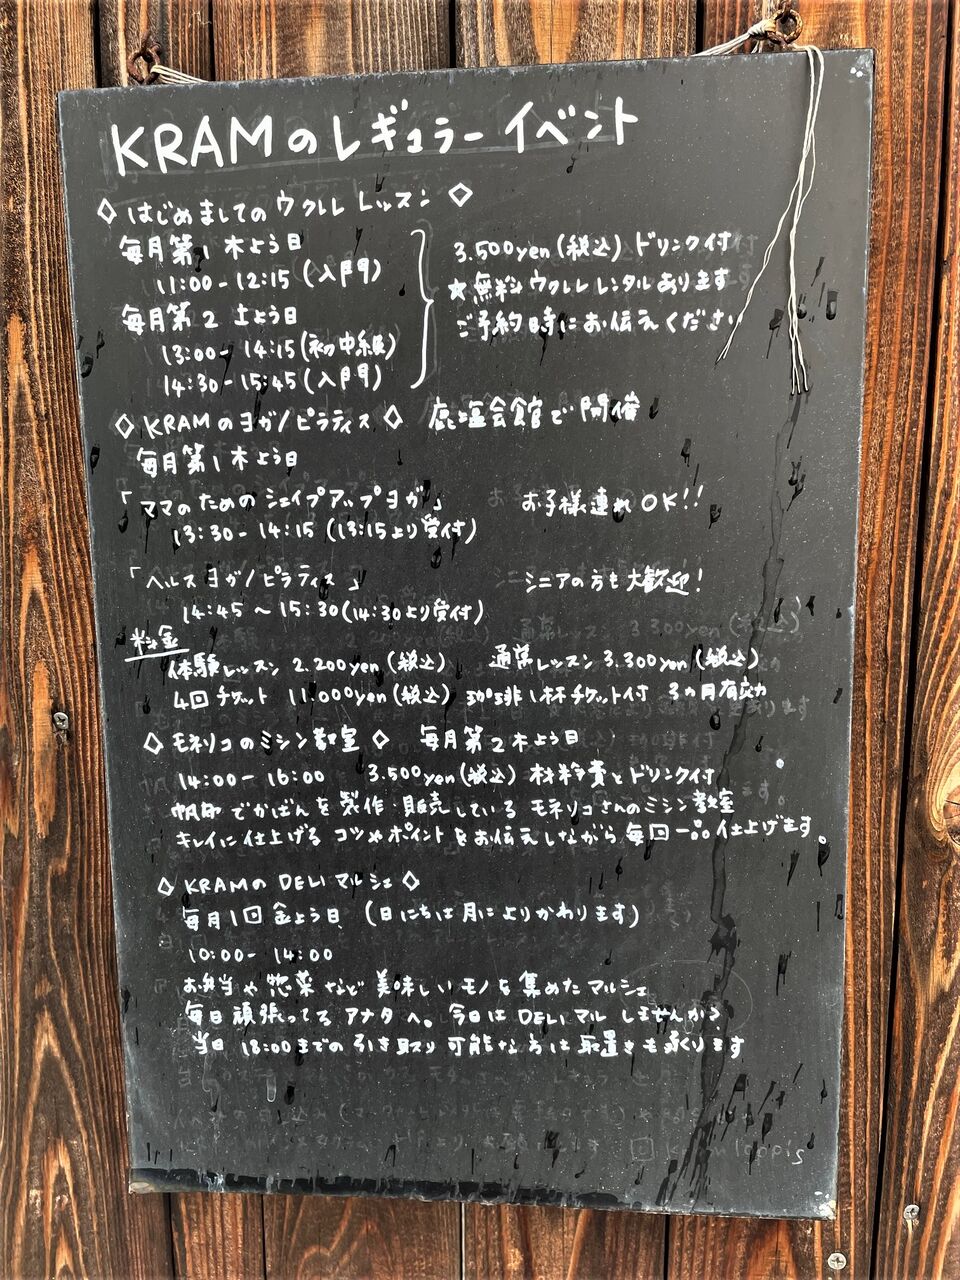 KRAMのレギュラーイベント
◇はじめましてのウクレレレッスン◇
毎月第1木よう日
11:00-12:15(入門)
毎月第2土よう日
13:00-14:15(初中級)
14:30-15:45(入門)
3.500yen(税込)ドリンク付
★無料ウクレレレンタルあります
ご予約時にお伝えください
◇KRAMのヨガ/ピラティス◇ 鹿塩会館で開催
毎月第1木よう日
「ママのためのシェイプアップヨガ」 お子様連れOK!!
13:30-14:15(13:15より受付)
「ヘルスヨガ/ピラティス」 シニアの方も大歓迎!
14:45〜15:30(14:30より受付)
料金
体験レッスン2.200yen(税込) 通常レッスン3.300yen(税込)
4回チケット 11.000yen(税込)珈琲1杯チケット付 3カ月有効
◇モネリコのミシン教室◇ 毎月第2木よう日
14:00-16:00 3.500yen(税込)材料費とドリンク付
帆布でかばんを製作・販売しているモネリコさんのミシン教室
キレイに仕上げるコツやポイントをお伝えしながら毎回一品仕上げます。
◇KRAMのDELIマルシェ◇
毎月1回金よう日 (日にちは月によりかわります)
10:00-14:00
お弁当や惣菜など美味しいモノを集めたマルシェ
毎日頑張ってるアナタへ。今日はDELIマルしませんか
当日18:00までの引き取り可能な方は取置きも承ります